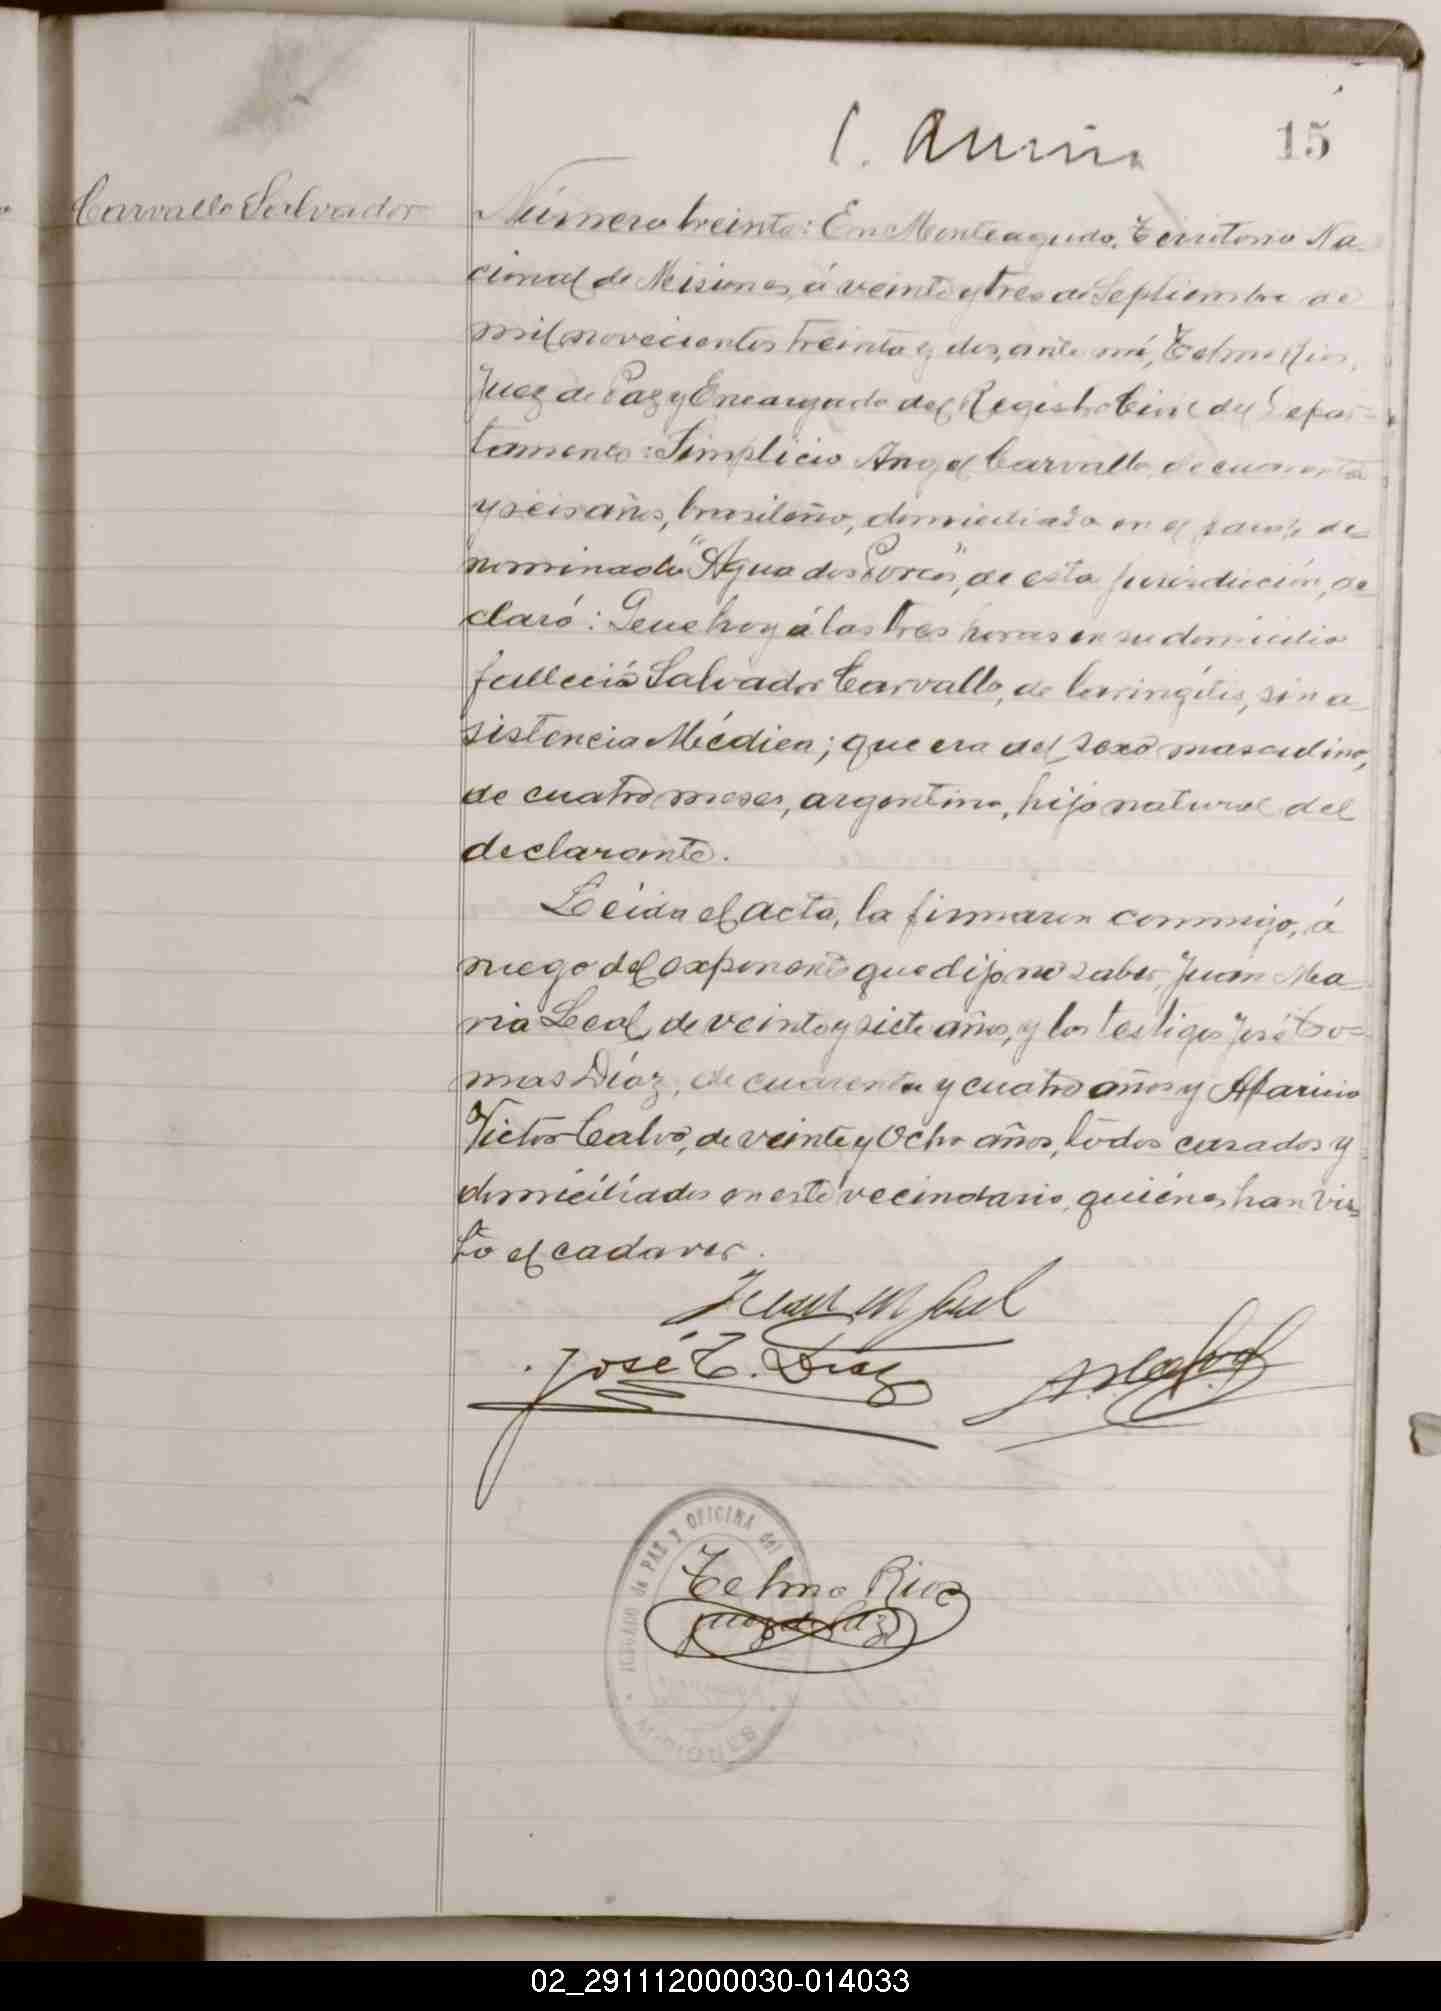 15
Carvallo Salvador
Número treinta: En Monteagudo, Territorio Na-
cional de Misiones, á veinte y tres de Septiembre de
mil novecientos treinta y dos, ante mí, Telmo Rios,
Juez de Paz y Encargado del Registro Civil del Depar-
tamento: Simplicio Angel Carvallo, de cuarenta
y seis años, brasileño, domiciliado en el paraje de-
nominado "Agua dos Porcos", de esta jurisdicción, de-
claró: Que hoy á las tres horas en su domicilio
falleció Salvador Carvallo, de laringitis, sin a-
sistencia Médica; que era del sexo masculino,
de cuatro meses, argentino, hijo natural del
declarante.
Léida el acta, la firmaron conmigo, á
ruego del exponente que dijo no saber, Juan Ma-
ria Leal, de veinte y siete años, y los testigos José To-
mas Díaz, de cuarenta y cuatro años y Aparicio
Victor Calvo, de veinte y Ocho años, todos casados y
domicíliados en este vecindario, quiénes han vis-
to el cadaver.
Juan M Leal
José T. Diaz
Calvo
JUZGADO de PAZ Y OFICINA del
Telmo Rios
Juez de Paz
MISIONES
02_291112000030-014033